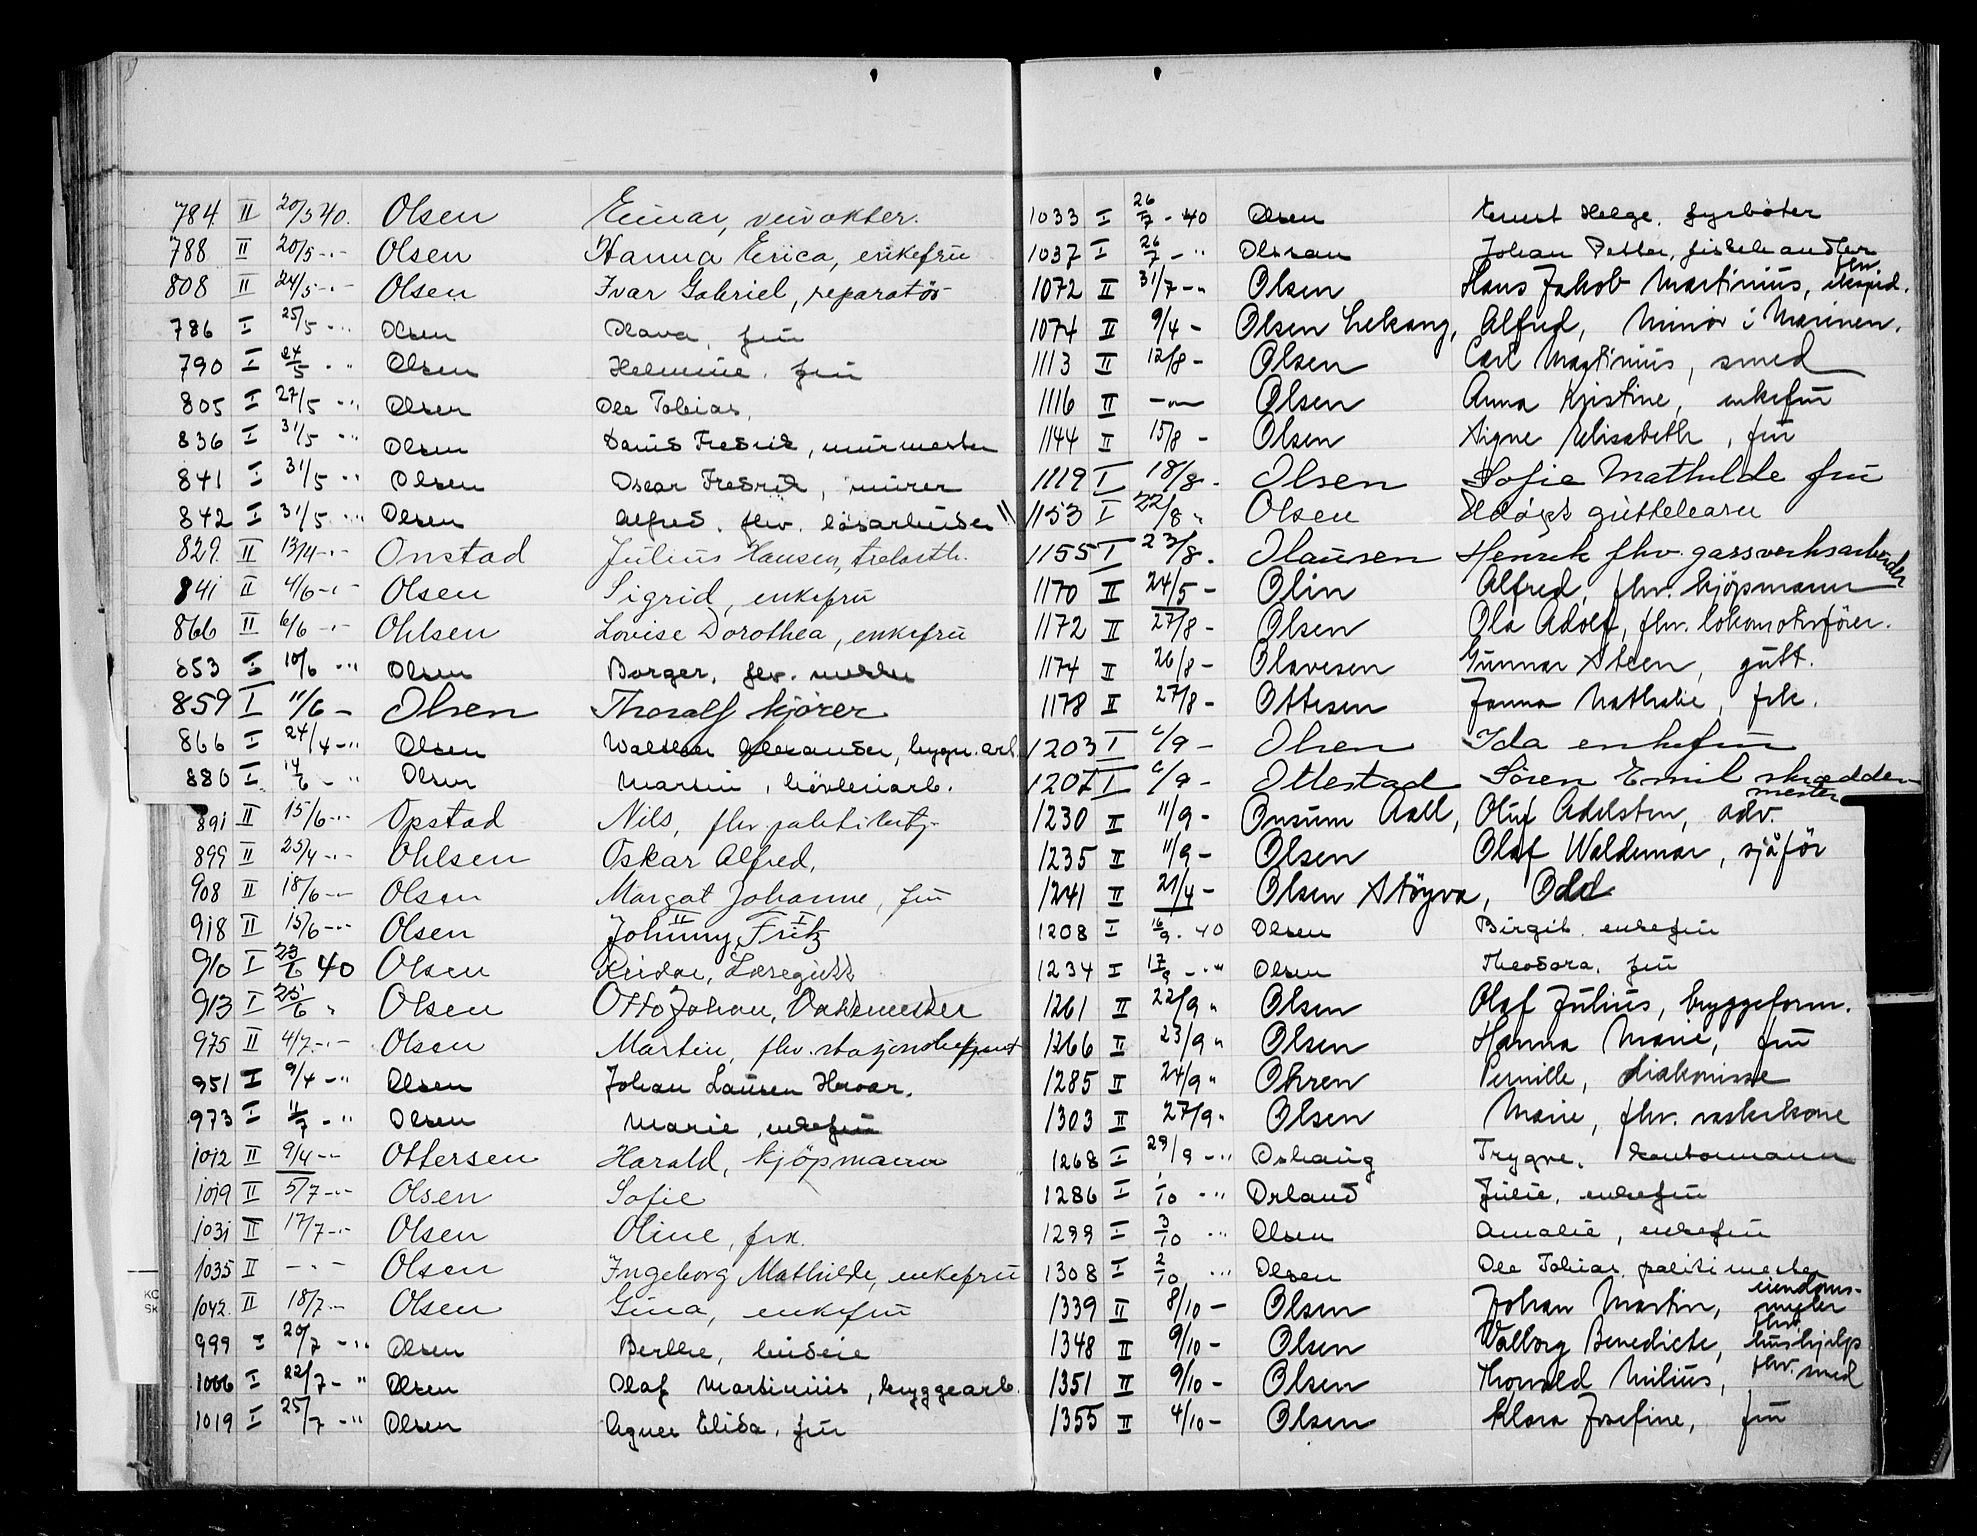 784. II 20/5 40. Olsen Einar, veivokter.
788 II 20/5 -"- Olsen Hanna Erica, enkefru
808 II 24/5 -"- Olsen Ivar Gabriel, reparatör
786 I 25/5 - " Olsen Olava, fru
790 I 24/5 - " Olsen Helmine, fru
805 I 27/5 - " Olsen Ole Tobias,
836 I 31/5 - " Olsen Fredrik, murmester
841 I 31/5 - " Olsen Oscar Fredrik, murer
842 I 31/5 - " Olsen Alfred, fhv. løsarbeider
829. II 13/4 -"- Onstad Julius Hansen,
841 II 4/6 -"- Olsen Sigrid, enkefru
866 II 6/6 -"- Ohlsen Lovise Dorothea, enkefru
853 I 10/6 - " Olsen Borger, fhv.
859 I 11/6 - Olsen Thoralf kjører
866 I 24/4 - " Olsen Walther Alexander, bygn. arb.
880 I 14/6 - " Olsen Martin, høvleriarb.
891 II 15/6 -"- Opstad Nils, fhv politibetj.
899 II 25/4 -"- Ohlsen Oskar Alfred,
908 II 18/6 -"- Olsen Margot Johanne, fru
918 II 15/6 -"- Olsen Johnny, Fritz
910 I 23/6 40 Olsen Reidar, Læregutt
913 I 25/6 " Olsen Otto Johan, Vaktmester
975 II 4/7 -"- Olsen Martin, fhv.
951 I 9/4 - " Olsen Johan Lauren
973 I 11/7 - " Olsen Marie, enkefru
1012 II 9/4 -"- Ottersen Harald, kjöpmann
1019 II 5/7 -"- Olsen Sofie
1031 II 17/7 -"- Olsen Oline, frk.
1035 II - " - Olsen Ingeborg Mathilde, enkefru
1042. II 18/7 - Olsen Gina, enkefru
999 I 20/7 - " Olsen Berthe,
1006 I 22/7 - " Olsen Olaf Martinius, bryggearb.
1019 I 25/7 - " Olsen Agnes Elida, fru
1033 I 26/7 - 40 Olsen Ernst Helge, fyrbøter
1037 I 26/7 - " Johan Petter, fiskehandler
1072 II 31/7 - " Olsen Hans Jakob Martinius, fhv. eksped.
1074 II 9/4 - Olsen Lekang, Alfred, Minör i Marinen.
1113 II 12/8 - Olsen Carl Martinius, smed
1116 II - " - Olsen Anna Kristine, enkefru
1144 II 15/8 - Olsen Signe Elisabeth, fru
1119 I 18/8 - Olsen Sofie Mathilde fru
1153 I 22/8 " Olsen
1155 I 23/8 . Olausen Henrik fhv. gassverksarbeider
1170 II 24/5 - Olin Alfred, fhv. kjöpmann
1172 II 27/8 - Olsen Ola Adolf, fhv. lokomotivförer.
1174 II 26/8 - Olavesen Gunnar Steen, gutt.
1178 II 27/8 - Ottesen Janna Nathalie, frk.
1203 I 6/9 - Olsen Ida enkefru
1207 I 6/9 - Ottestad Sören Emil skreddermester
1230 II 11/9 - Onsum Aall, Oluf Adelsten, adv.
1235 II 11/9 - Olsen Olaf Waldemar, sjåför
1241 II 21/4 - Olsen Stöyva, Odd
1208 I 16/9 - 40 Olsen Birgit, enkefru
1234 I 17/9 - " Olsen Theodora, fru
1261 II 22/9 " Olsen Olaf Julius, bryggeform.
1266 II 23/9 " Olsen Hanna Marie, fru
1285 II 24/9 " Ohren Pernille, diakonisse
1303 II 27/9 " Olsen Marie, fhv. vaskekone
1268 I 29/9 - " Oshaug Trygve, kontormann
1286 I 1/10 - " Orland Julie, enkefru
1299 I 3/10 - " Olsen Amalie, enkefru
1308 I 2/10 - " Olsen Ole Tobias, politimester
1339 II 8/10 - Olsen Johan Martin, eiendomsmegler
1348 II 9/10 - Olsen Walborg Benedicte, fhv. hushjelp
1351 II 9/10 - Olsen Thorvald Milius, fhv. smed
1355 II 4/10 - Olsen Klara Josefine, fru